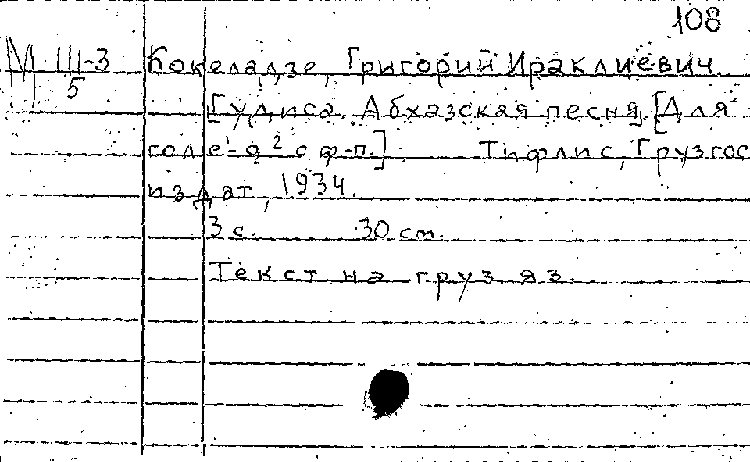 108
М III-3
5
Кокеладзе, Григорий Ираклиевич.
[Гудиса. Абхазская песня]. [Для
голе-а 2 с ф-п.] Тифлис, Грузгос
издат, 1934.
3 с. 30 см.
Текст на груз яз.